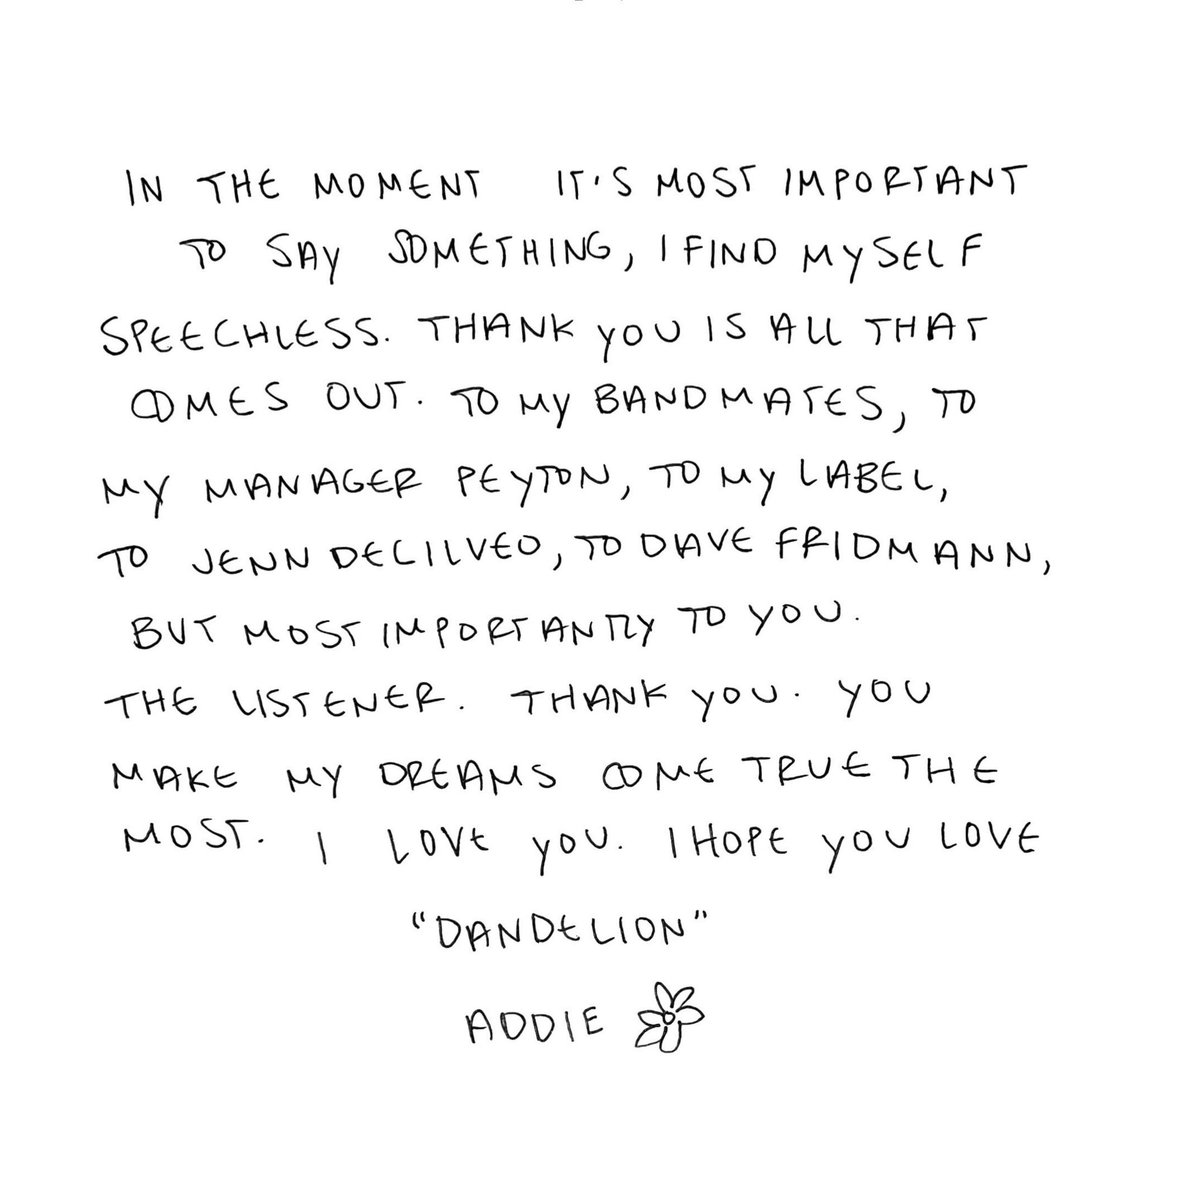 IN THE MOMENT IT'S MOST IMPORTANT
TO SAY SOMETHING, I FIND MYSELF
SPEECHLESS. THANK YOU IS ALL THAT
COMES OUT. TO MY BANDMATES, TO
MY MANAGER PEYTON, TO MY LABEL,
TO JENN DECILVEO, TO DAVE FRIDMANN,
BUT MOST IMPORTANTLY TO YOU.
THE LISTENER. THANK YOU. YOU
MAKE MY DREAMS COME TRUE THE
MOST. I LOVE YOU. I HOPE YOU LOVE
"DANDELION"
ADDIE